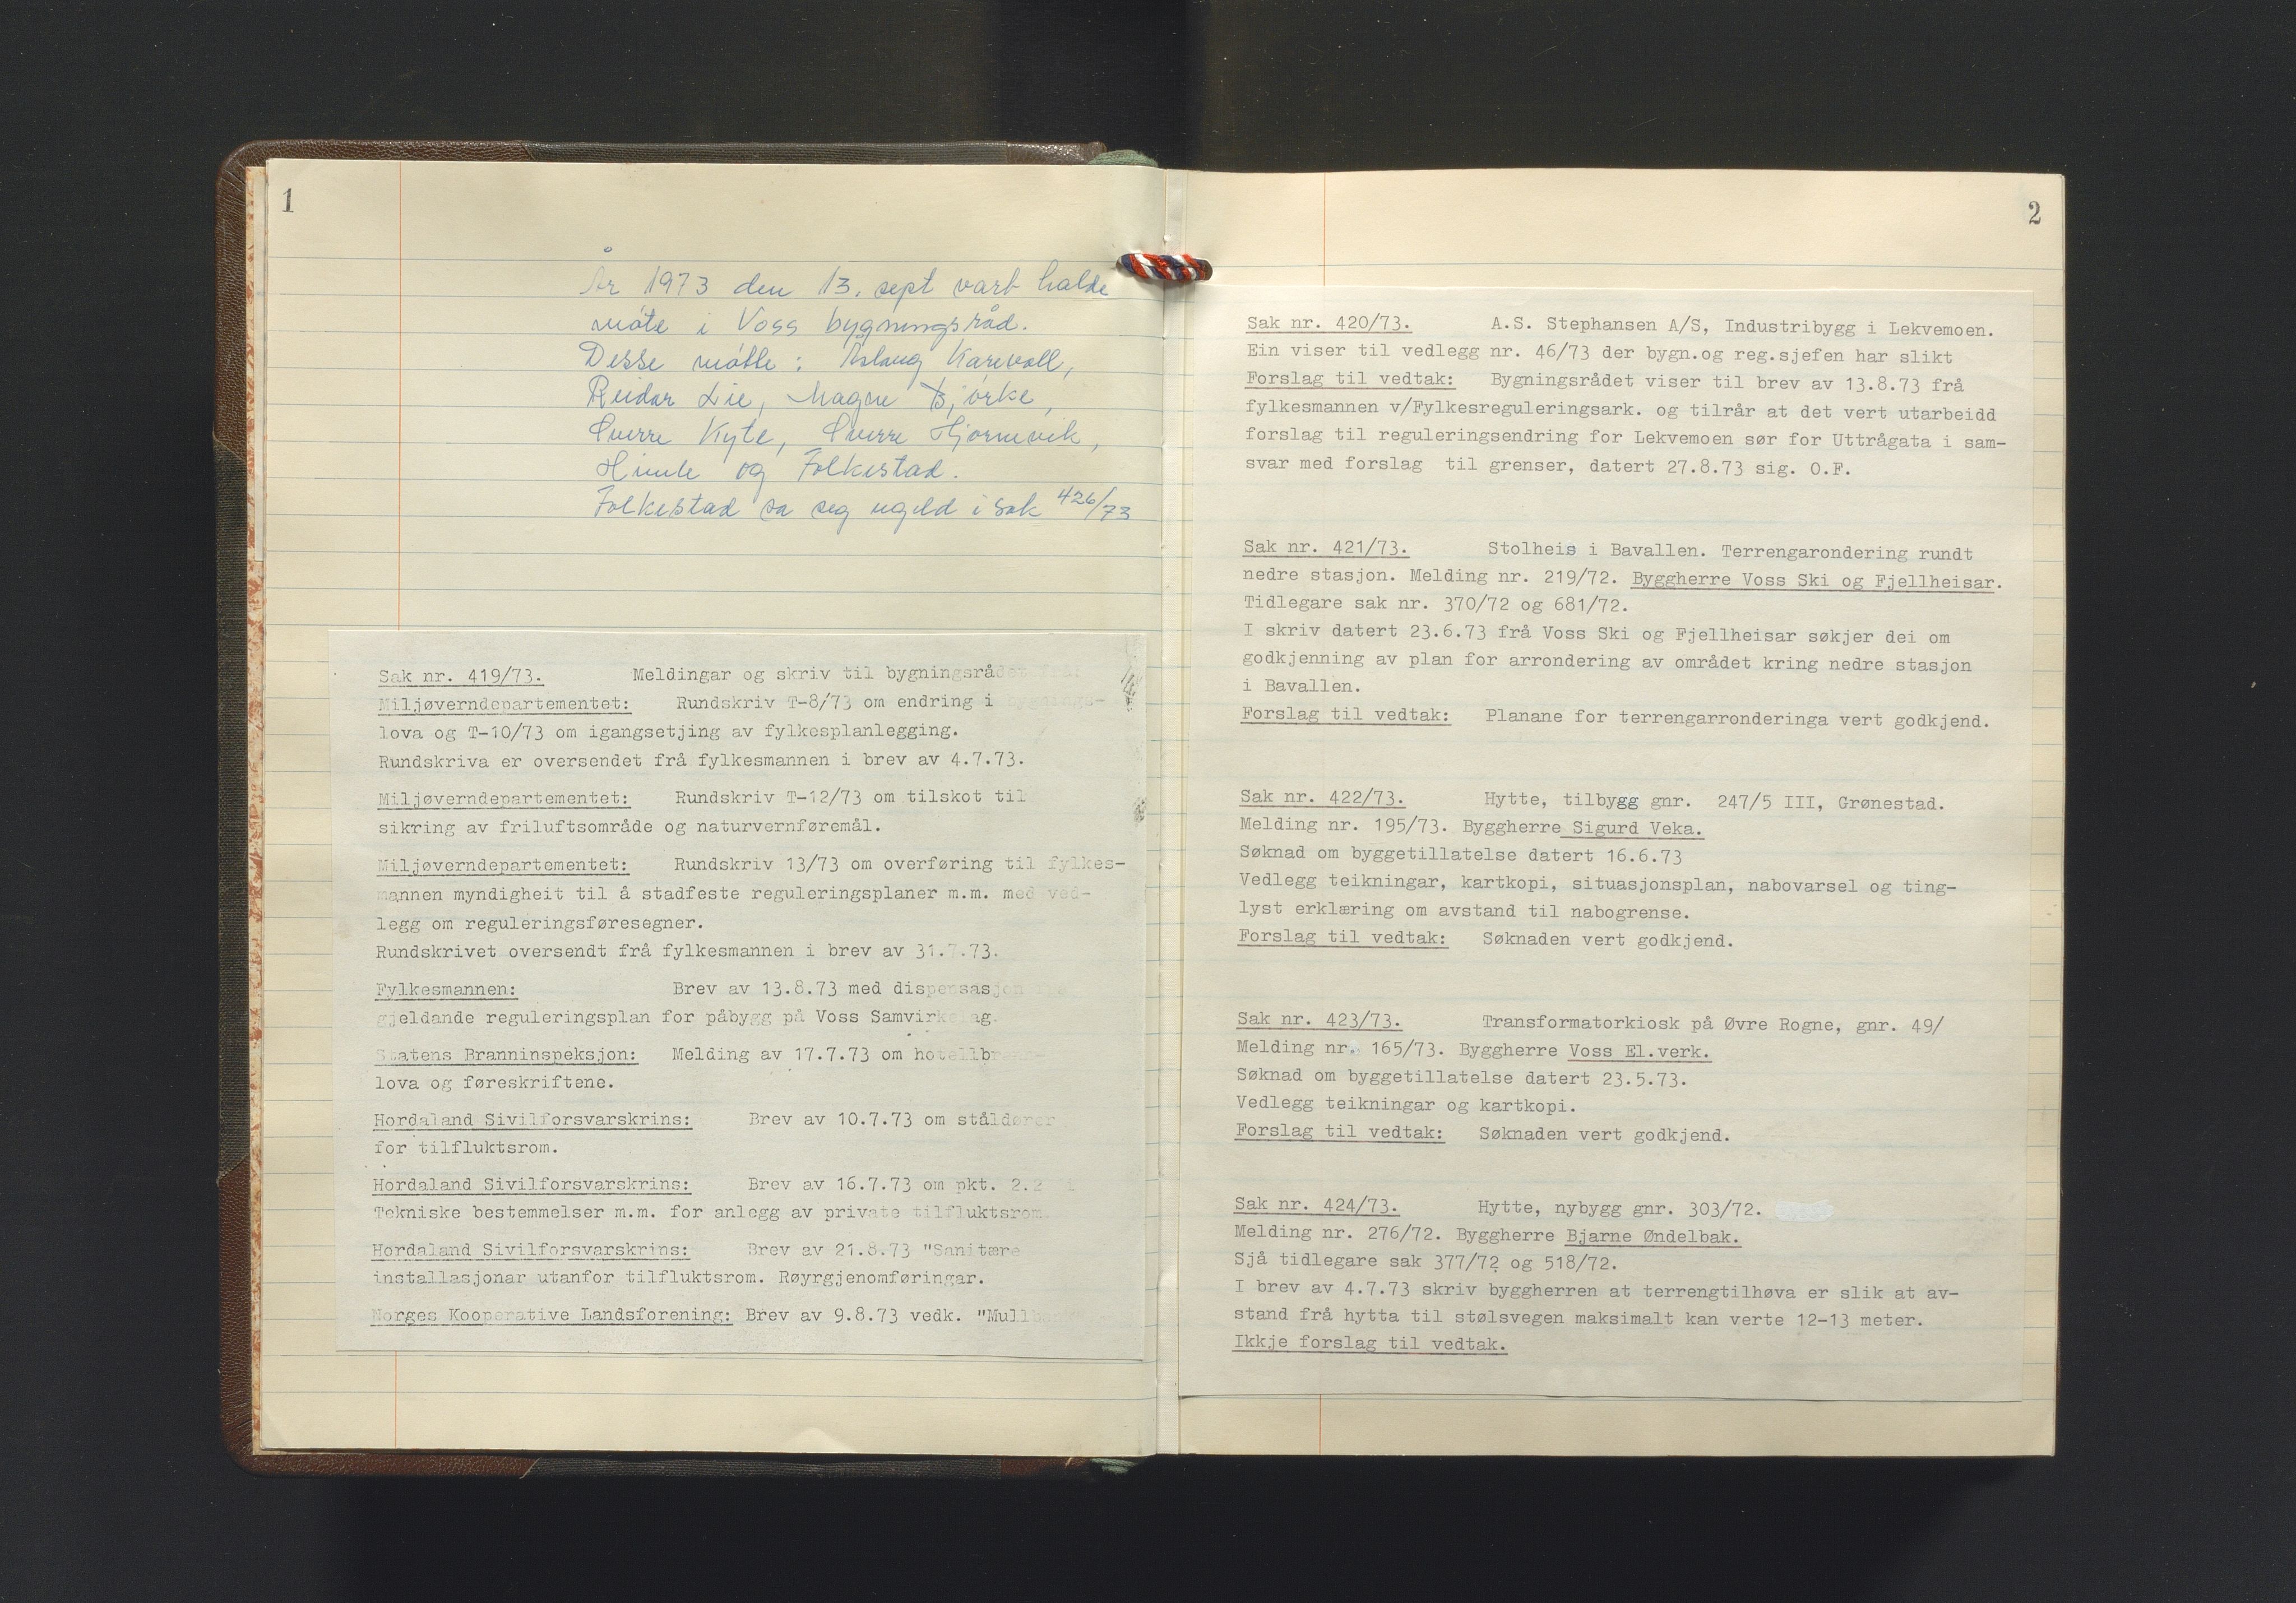 1
År 1973 den 13. sept vart halde
møte i Voss bygningsråd.
Desse møtte: Aslaug Karevoll,
Reidar Lie, Magne Bjørke,
Sverre Kyte, Sverre Hjørnevik,
Himle og Folkestad.
Folkestad sa seg ugild i sak 426/73
Sak nr. 419/73. Meldingar og skriv til bygningsrådet frå:
Miljøverndepartementet: Rundskriv T-8/73 om endring i bygnings-
lova og T-10/73 om igangsetjing av fylkesplanlegging.
Rundskriva er oversendet frå fylkesmannen i brev av 4.7.73.
Miljøverndepartementet: Rundskriv T-12/73 om tilskot til
sikring av friluftsområde og naturvernføremål.
Miljøverndepartementet: Rundskriv 13/73 om overføring til fylkes-
mannen myndigheit til å stadfeste reguleringsplaner m.m. med ved-
legg om reguleringsføresegner.
Rundskrivet oversendt frå fylkesmannen i brev av 31.7.73.
Fylkesmannen: Brev av 13.8.73 med dispensasjon
gjeldande reguleringsplan for påbygg på Voss Samvirkelag.
Statens Branninspeksjon: Melding av 17.7.73 om hotellbrann-
lova og føreskriftene.
Hordaland Sivilforsvarskrins: Brev av 10.7.73 om ståldører
for tilfluktsrom.
Hordaland Sivilforsvarskrins: Brev av 16.7.73 om pkt. 2.2 i
Tekniske bestemmelser m.m. for anlegg av private tilfluktsrom.
Hordaland Sivilforsvarskrins: Brev av 21.8.73 "Sanitære
installasjonar utanfor tilfluktsrom. Røyrgjenomføringar.
Norges Kooperative Landsforening: Brev av 9.8.73 vedk.
2
Sak nr. 420/73. A.S. Stephansen A/S, Industribygg i Lekvemoen.
Ein viser til vedlegg nr. 46/73 der bygn.og reg.sjefen har slikt
Forslag til vedtak: Bygningsrådet viser til brev av 13.8.73 frå
fylkesmannen v/Fylkesreguleringsark. og tilrår at det vert utarbeidd
forslag til reguleringsendring for Lekvemoen sør for Uttrågata i sam-
svar med forslag til grenser, datert 27.8.73 sig. O.F.
Sak nr. 421/73. Stolheis i Bavallen. Terrengarondering rundt
nedre stasjon. Melding nr. 219/72. Byggherre Voss Ski og Fjellheisar.
Tidlegare sak nr. 370/72 og 681/72.
I skriv datert 23.6.73 frå Voss Ski og Fjellheisar søkjer dei om
godkjenning av plan for arrondering av området kring nedre stasjon
i Bavallen.
Forslag til vedtak: Planane for terrengarronderinga vert godkjend.
Sak nr. 422/73. Hytte, tilbygg gnr. 247/5 III, Grønestad.
Melding nr. 195/73. Byggherre Sigurd Veka.
Søknad om byggetillatelse datert 16.6.73
Vedlegg teikningar, kartkopi, situasjonsplan, nabovarsel og ting-
lyst erklæring om avstand til nabogrense.
Forslag til vedtak: Søknaden vert godkjend.
Sak nr. 423/73. Transformatorkiosk på Øvre Rogne, gnr. 49/
Melding nr. 165/73. Byggherre Voss El.verk.
Søknad om byggetillatelse datert 23.5.73.
Vedlegg teikningar og kartkopi.
Forslag til vedtak: Søknaden vert godkjend.
Sak nr. 424/73. Hytte, nybygg gnr. 303/72.
Melding nr. 276/72. Byggherre Bjarne Øndelbak.
Sjå tidlegare sak 377/72 og 518/72.
I brev av 4.7.73 skriv byggherren at terrengtilhøva er slik at av-
stand frå hytta til stølsvegen maksimalt kan verte 12-13 meter.
Ikkje forslag til vedtak.